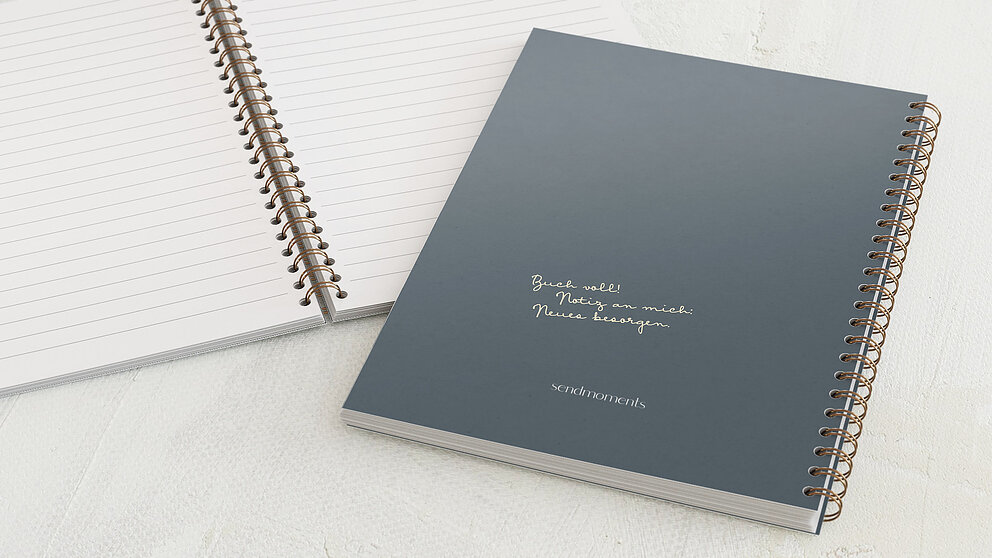 Buch voll!
Notiz an mich:
Neues besorgen.
sendmoments